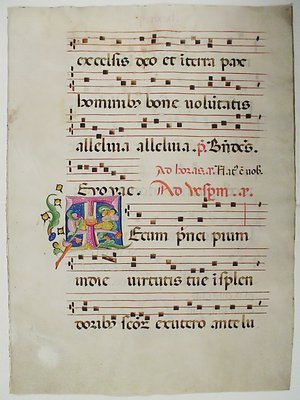 excelsis deo et in terra pax
hominibus bone voluntatis
alleluia alleluia. p̄s. Bn̄dc̄s.
Ad horas. añ. Hac ē vob.
Evovae. Ad vesp̄m. añ.
Tecum prīci pium
in die virtutis tue ī splen
doribus sc̄or̄ ex utero ante lu